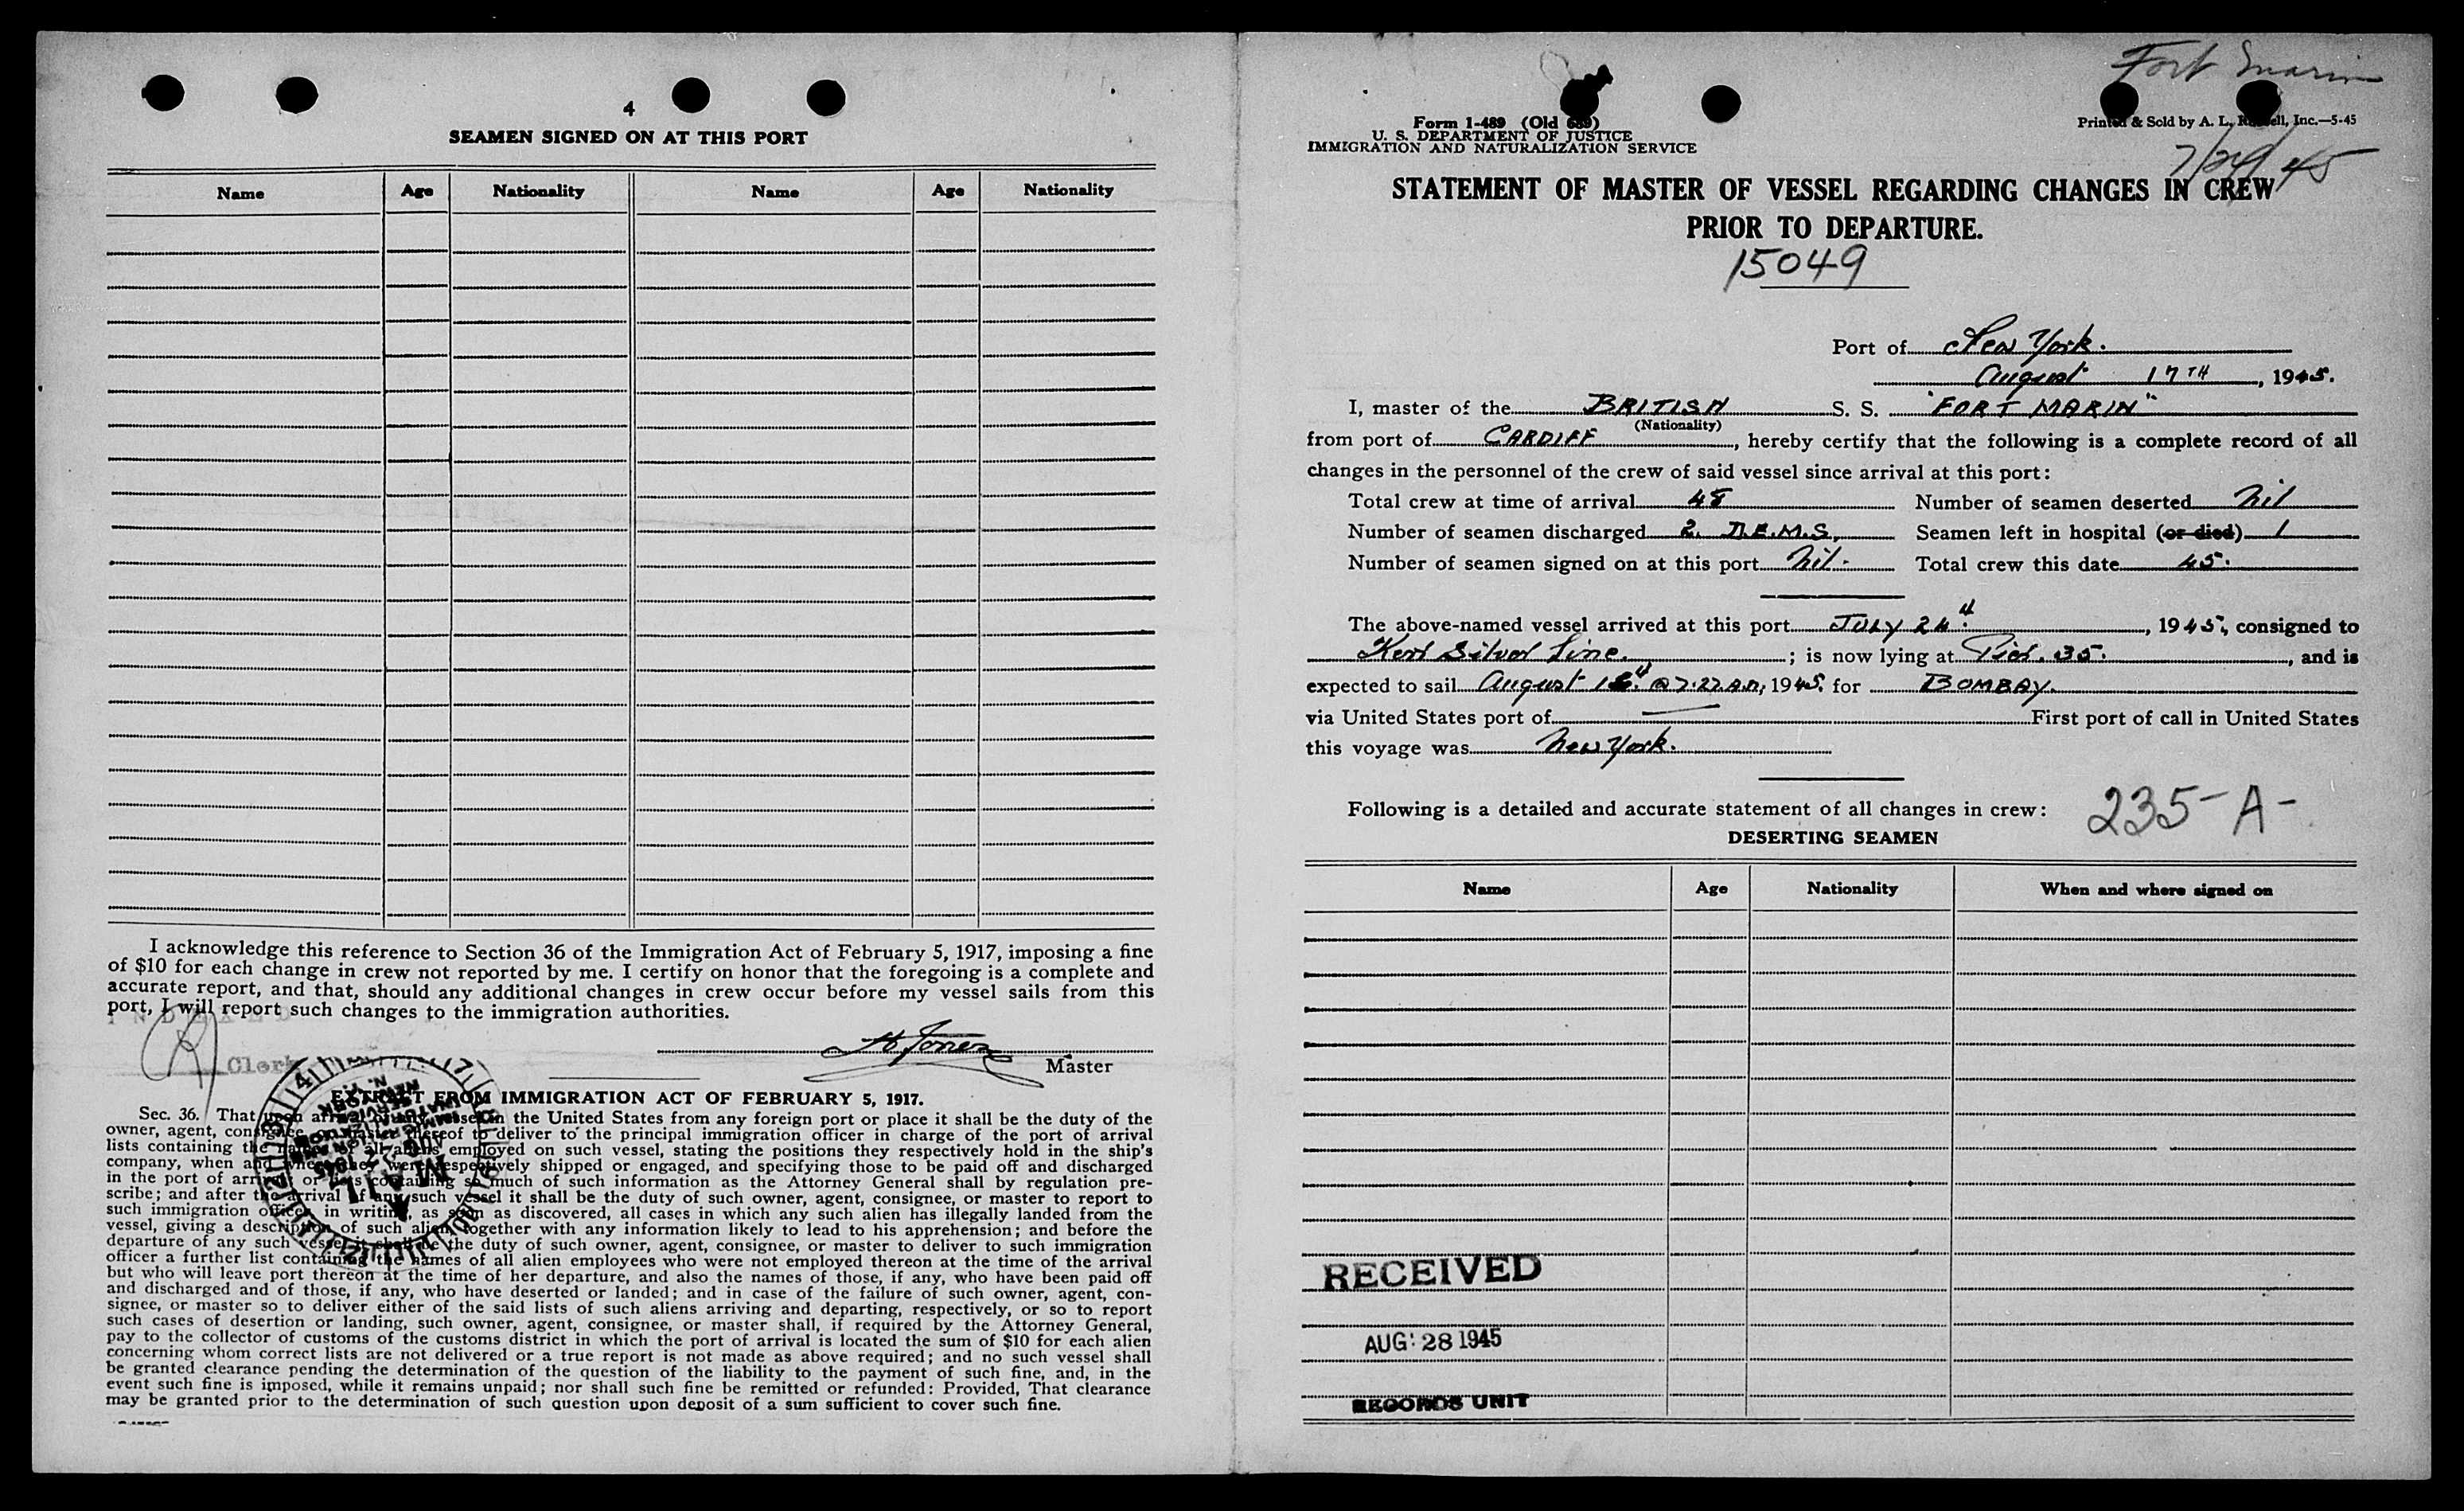 4
SEAMEN SIGNED ON AT THIS PORT
Name Age Nationality Name Age Nationality
I acknowledge this reference to Section 36 of the Immigration Act of February 5, 1917, imposing a fine
of $10 for each change in crew not reported by me. I certify on honor that the foregoing is a complete and
accurate report, and that, should any additional changes in crew occur before my vessel sails from this
port, I will report such changes to the immigration authorities.
Clerk
Jones
Master
EXTRACT FROM IMMIGRATION ACT OF FEBRUARY 5, 1917.
Sec. 36. That upon arrival of any vessel in the United States from any foreign port or place it shall be the duty of the
owner, agent, consignee, or master thereof to deliver to the principal immigration officer in charge of the port of arrival
lists containing the names of all aliens employed on such vessel, stating the positions they respectively hold in the ship's
company, when and where they were respectively shipped or engaged, and specifying those to be paid off and discharged
in the port of arrival; or lists containing so much of such information as the Attorney General shall by regulation pre-
scribe; and after the arrival of any such vessel it shall be the duty of such owner, agent, consignee, or master to report to
such immigration officer, in writing, as soon as discovered, all cases in which any such alien has illegally landed from the
vessel, giving a description of such alien, together with any information likely to lead to his apprehension; and before the
departure of any such vessel it shall be the duty of such owner, agent, consignee, or master to deliver to such immigration
officer a further list containing the names of all alien employees who were not employed thereon at the time of the arrival
but who will leave port thereon at the time of her departure, and also the names of those, if any, who have been paid off
and discharged and of those, if any, who have deserted or landed; and in case of the failure of such owner, agent, con-
signee, or master so to deliver either of the said lists of such aliens arriving and departing, respectively, or so to report
such cases of desertion or landing, such owner, agent, consignee, or master shall, if required by the Attorney General,
pay to the collector of customs of the customs district in which the port of arrival is located the sum of $10 for each alien
concerning whom correct lists are not delivered or a true report is not made as above required; and no such vessel shall
be granted clearance pending the determination of the question of the liability to the payment of such fine, and, in the
event such fine is imposed, while it remains unpaid; nor shall such fine be remitted or refunded: Provided, That clearance
may be granted prior to the determination of such question upon deposit of a sum sufficient to cover such fine.
MAIL
Fort Marin
Form 1-489 (Old 689)
U. S. DEPARTMENT OF JUSTICE
IMMIGRATION AND NATURALIZATION SERVICE
Printed & Sold by A. L. Russell, Inc.—5-45
7/24/45
STATEMENT OF MASTER OF VESSEL REGARDING CHANGES IN CREW
PRIOR TO DEPARTURE.
15049
Port of New York.
August 17TH, 1945.
I, master of the BRITISH S. S. "FORT MARIN"
(Nationality)
from port of CARDIFF, hereby certify that the following is a complete record of all
changes in the personnel of the crew of said vessel since arrival at this port:
Total crew at time of arrival 48 Number of seamen deserted Nil
Number of seamen discharged 2. D.E.M.S. Seamen left in hospital (or died) 1
Number of seamen signed on at this port Nil. Total crew this date 45.
The above-named vessel arrived at this port JULY 24th, 1945, consigned to
Kerr Silver Line.; is now lying at Pier. 35., and is
expected to sail August @ 7.22 A.M, 1945. for BOMBAY.
via United States port of — First port of call in United States
this voyage was New York.
Following is a detailed and accurate statement of all changes in crew:
235-A-
DESERTING SEAMEN
Name Age Nationality When and where signed on
RECEIVED
AUG 28 1945
RECORDS UNIT